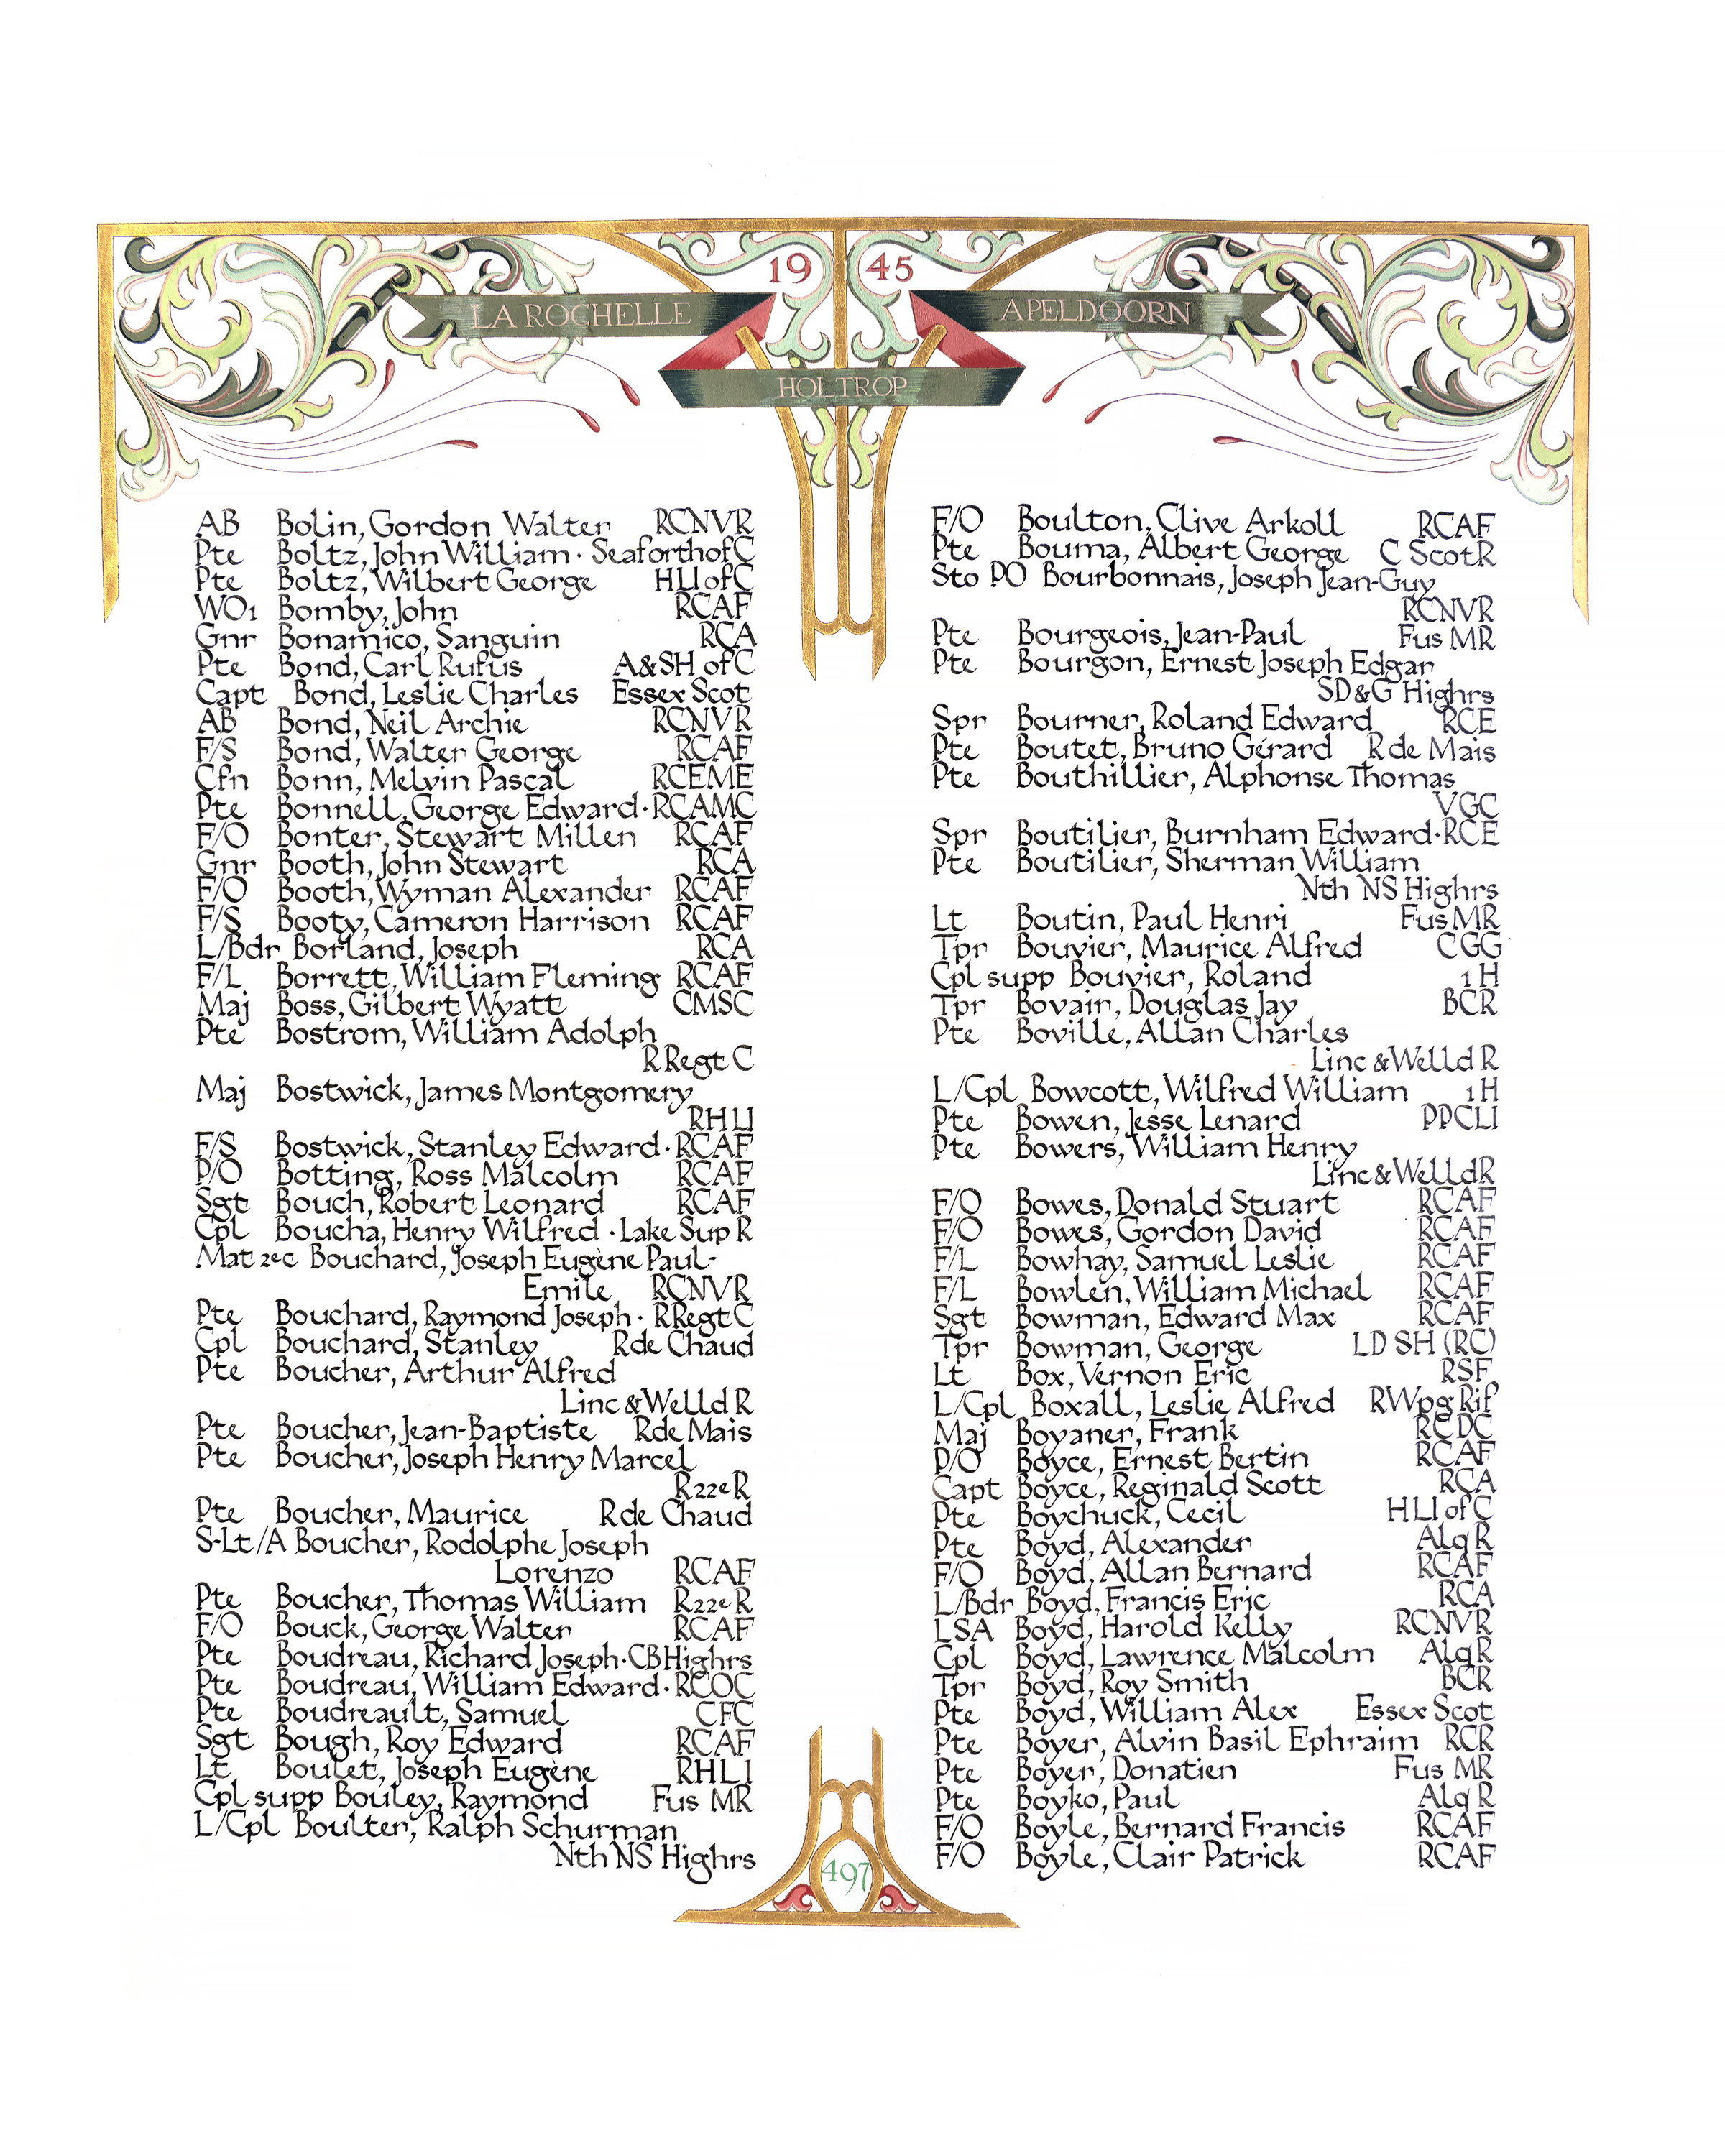 19 45
LA ROCHELLE
APELDOORN
HOLTROP
AB Bolin, Gordon Walter RCNVR
Pte Boltz, John William · Seaforth of C
Pte Boltz, Wilbert George HLI of C
WO1 Bomby, John RCAF
Gnr Bonamico, Sanguin RCA
Pte Bond, Carl Rufus A&SH of C
Capt Bond, Leslie Charles Essex Scot
AB Bond, Neil Archie RCNVR
F/S Bond, Walter George RCAF
Cfn Bonn, Melvin Pascal RCEME
Pte Bonnell, George Edward · RCAMC
F/O Bonter, Stewart Millen RCAF
Gnr Booth, John Stewart RCA
F/O Booth, Wyman Alexander RCAF
F/S Booty, Cameron Harrison RCAF
L/Bdr Borland, Joseph RCA
F/L Borrett, William Fleming RCAF
Maj Boss, Gilbert Wyatt CMSC
Pte Bostrom, William Adolph
R Regt C
Maj Bostwick, James Montgomery
RHLI
F/S Bostwick, Stanley Edward · RCAF
P/O Botting, Ross Malcolm RCAF
Sgt Bouch, Robert Leonard RCAF
Cpl Boucha, Henry Wilfred · Lake Sup R
Mat 2ec Bouchard, Joseph Eugène Paul-
Emile RCNVR
Pte Bouchard, Raymond Joseph · R Regt C
Cpl Bouchard, Stanley R de Chaud
Pte Boucher, Arthur Alfred
Linc & Welld R
Pte Boucher, Jean-Baptiste R de Mais
Pte Boucher, Joseph Henry Marcel
R22eR
Pte Boucher, Maurice R de Chaud
S-Lt/A Boucher, Rodolphe Joseph
Lorenzo RCAF
Pte Boucher, Thomas William R22eR
F/O Bouck, George Walter RCAF
Pte Boudreau, Richard Joseph · CB Highrs
Pte Boudreau, William Edward · RCOC
Pte Boudreault, Samuel CFC
Sgt Bough, Roy Edward RCAF
Lt Boulet, Joseph Eugène RHLI
Cpl supp Bouley, Raymond Fus MR
L/Cpl Boulter, Ralph Schurman
Nth NS Highrs
F/O Boulton, Clive Arkoll RCAF
Pte Bouma, Albert George C Scot R
Sto PO Bourbonnais, Joseph Jean-Guy
RCNVR
Pte Bourgeois, Jean-Paul Fus MR
Pte Bourgon, Ernest Joseph Edgar
SD&G Highrs
Spr Bourner, Roland Edward RCE
Pte Boutet, Bruno Gérard R de Mais
Pte Bouthillier, Alphonse Thomas
VGC
Spr Boutilier, Burnham Edward · RCE
Pte Boutilier, Sherman William
Nth NS Highrs
Lt Boutin, Paul Henri Fus MR
Tpr Bouvier, Maurice Alfred CGG
Cpl supp Bouvier, Roland 1 H
Tpr Bovair, Douglas Jay BCR
Pte Boville, Allan Charles
Linc & Welld R
L/Cpl Bowcott, Wilfred William 1 H
Pte Bowen, Jesse Lenard PPCLI
Pte Bowers, William Henry
Linc & Welld R
F/O Bowes, Donald Stuart RCAF
F/O Bowes, Gordon David RCAF
F/L Bowhay, Samuel Leslie RCAF
F/L Bowlen, William Michael RCAF
Sgt Bowman, Edward Max RCAF
Tpr Bowman, George LD SH (RC)
Lt Box, Vernon Eric RSF
L/Cpl Boxall, Leslie Alfred R Wpg Rif
Maj Boyaner, Frank RCDC
P/O Boyce, Ernest Bertin RCAF
Capt Boyce, Reginald Scott RCA
Pte Boychuck, Cecil HLI of C
Pte Boyd, Alexander Alq R
F/O Boyd, Allan Bernard RCAF
L/Bdr Boyd, Francis Eric RCA
LSA Boyd, Harold Kelly RCNVR
Cpl Boyd, Lawrence Malcolm Alq R
Tpr Boyd, Roy Smith BCR
Pte Boyd, William Alex Essex Scot
Pte Boyer, Alvin Basil Ephraim RCR
Pte Boyer, Donatien Fus MR
Pte Boyko, Paul Alq R
F/O Boyle, Bernard Francis RCAF
F/O Boyle, Clair Patrick RCAF
497